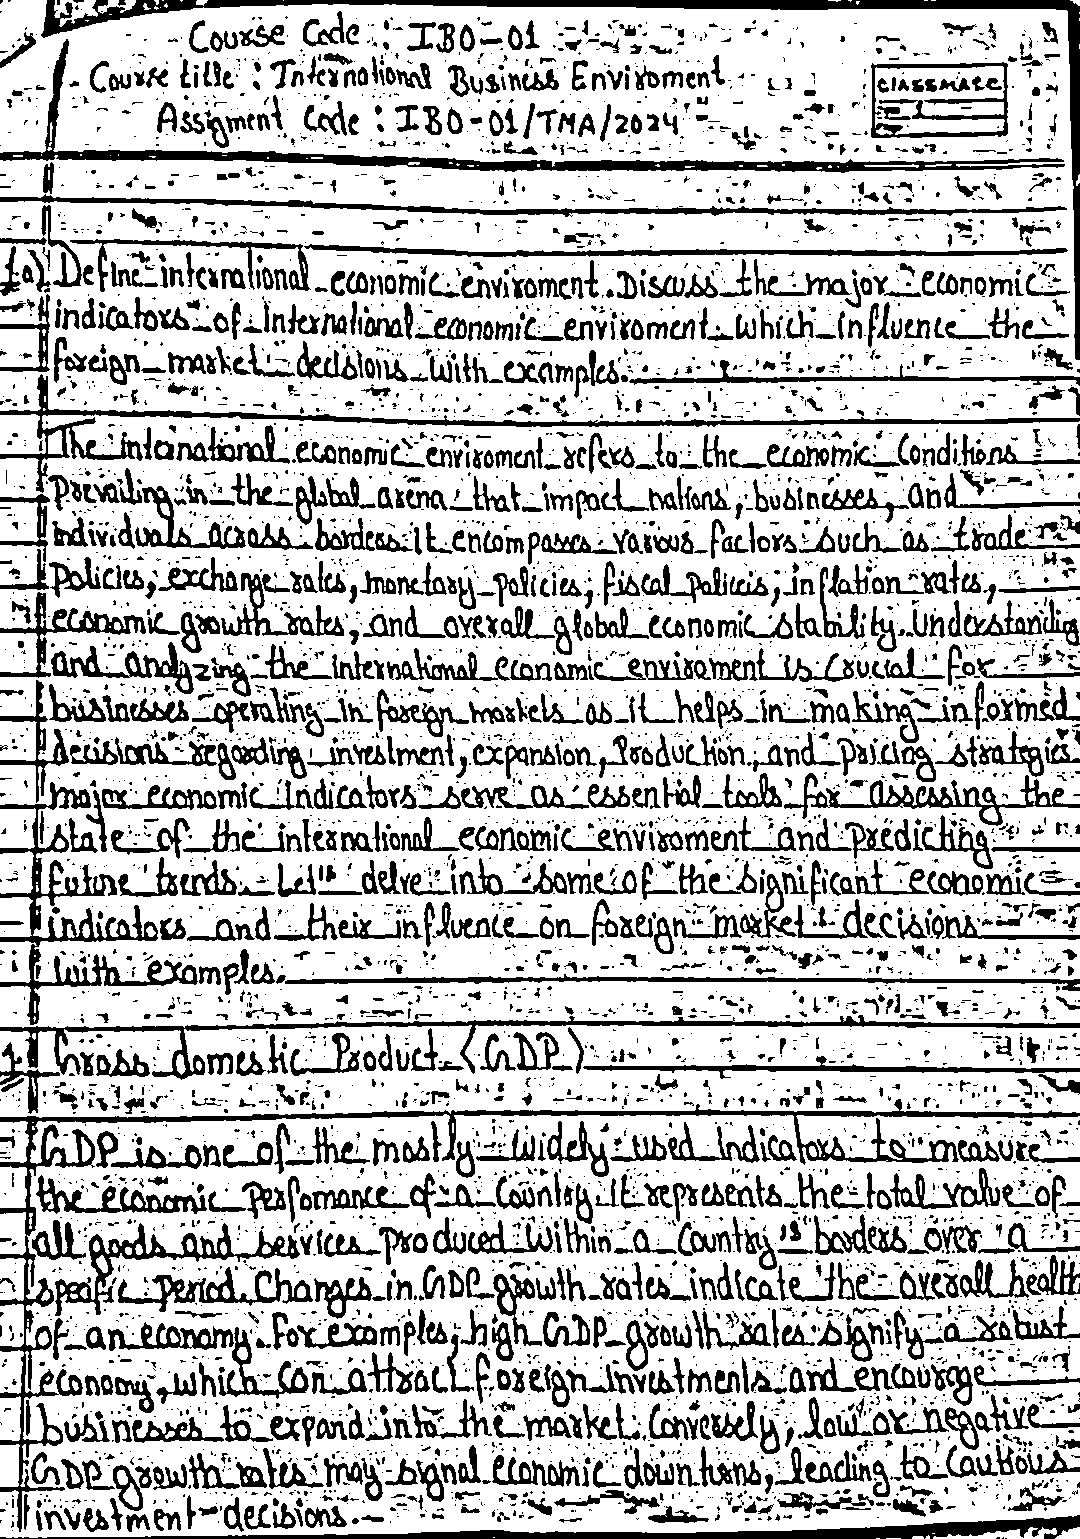 Course Code : IBO-01
Course title : International Business Enviroment
Assigment Code : IBO-01/TMA/2024
CLASSMATE
1
1a) Define international economic enviroment. Discuss the major economic
indicators of International economic enviroment which influence the
foreign market decisions with examples.
The international economic enviroment refers to the economic Conditions
Prevailing in the global arena that impact nations, businesses, and
individuals across borders. It encompasses various factors such as trade
Policies, exchange rates, monetary policies, fiscal policeis, inflation rates,
economic growth rates, and overall global economic stability. Understanding
and analyzing the international economic enviroment is Crucial for
businesses operating in foreign markets as it helps in making informed
decisions regarding investment, expansion, Production, and Pricing strategies
major economic Indicators serve as essential tools for assessing the
state of the international economic enviroment and Predicting
future trends. Let's delve into some of the significant economic
indicators and their influence on foreign market decisions
with examples.
1. Gross domestic Product (GDP)
GDP is one of the mostly widely used Indicators to measure
the economic Perfomance of a Country. It represents the total value of
all goods and services produced within a Country's borders over a
specific Period. Changes in GDP growth rates indicate the overall health
of an economy. For examples, high GDP growth rates signify a robust
economy, which can attract foreign investments and encourage
businesses to expand into the market. Conversely, low or negative
GDP growth rates may signal economic downturns, leading to Cautious
investment decisions.